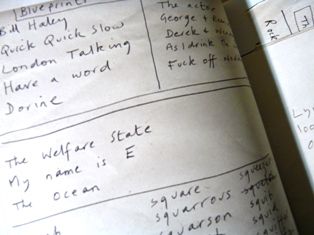 Blueprint
Bill Haley
Quick Quick Slow
London Talking
Have a word
Dorine
The acto
George +
Derek +
As I drink
Fuck off
The Welfare State
My name is E
The Ocean
square
squarrous
squarson
squeege
squid
Rock